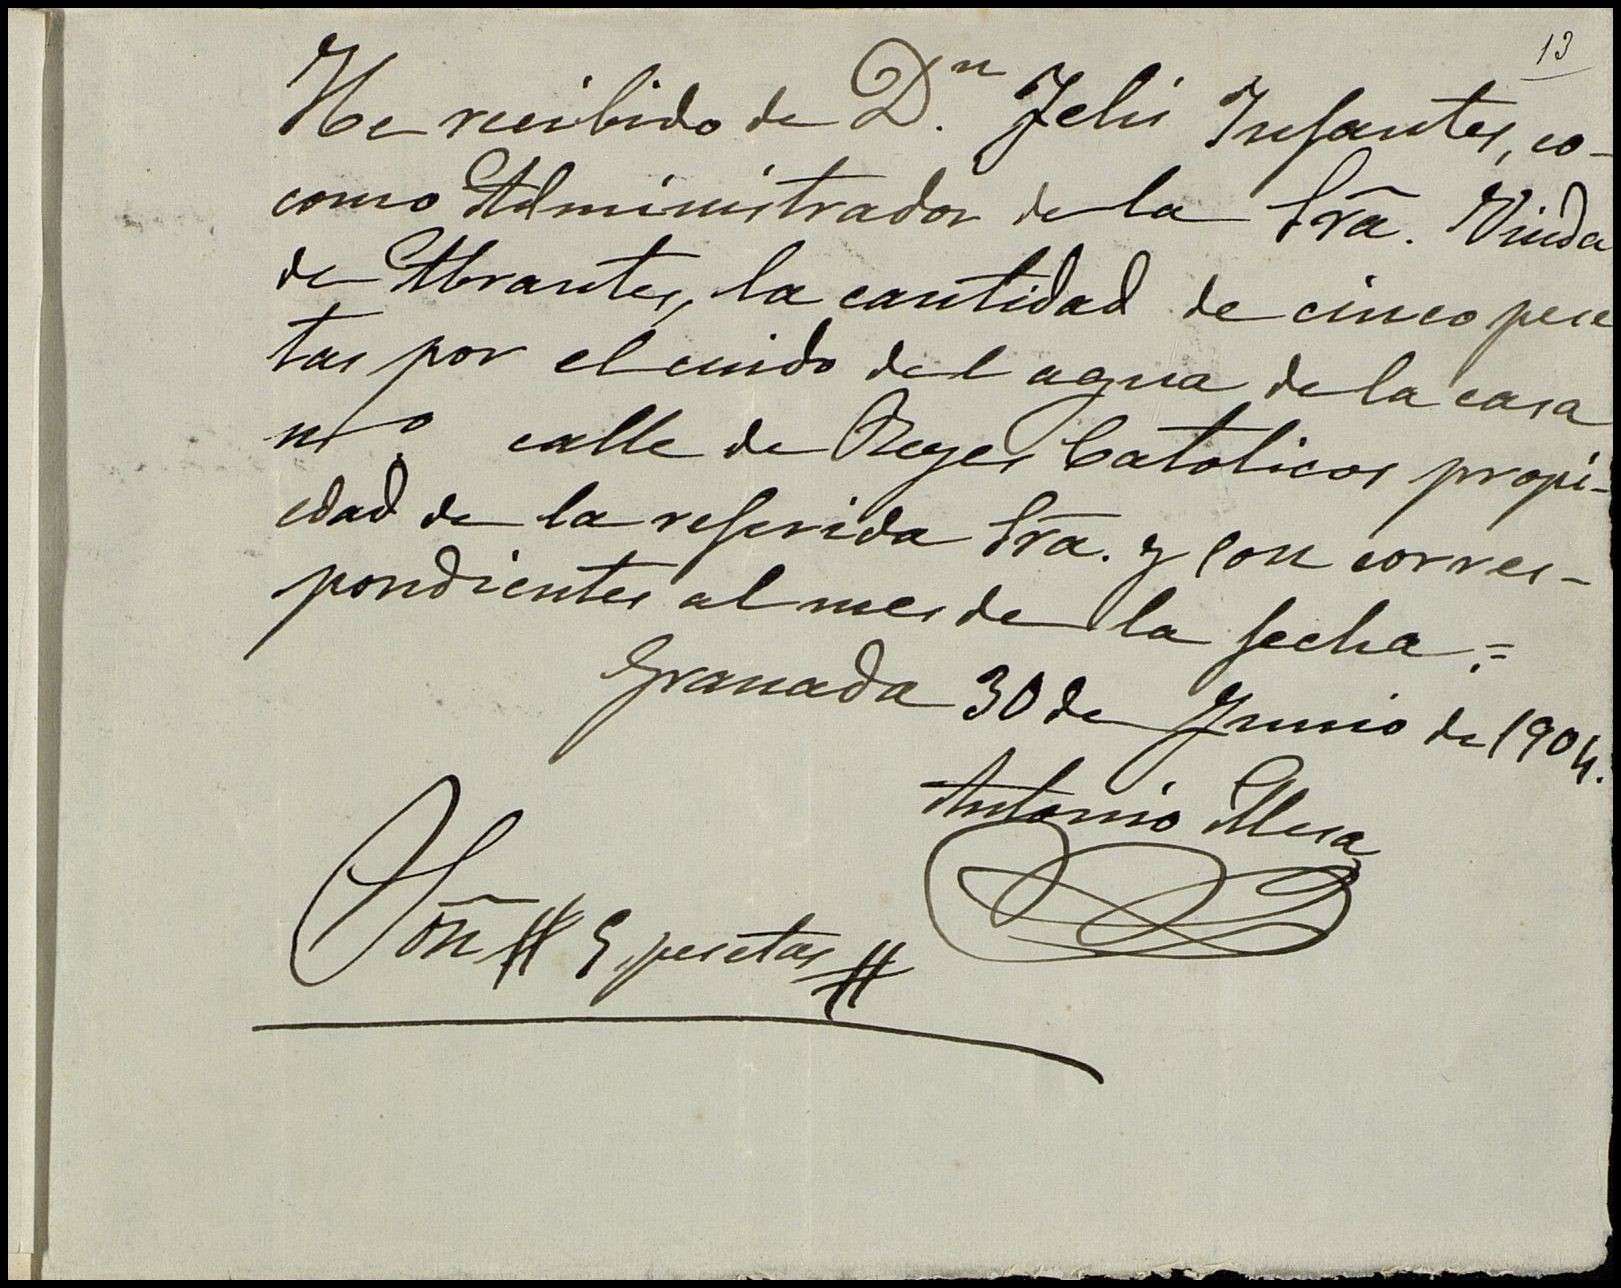 13
He recibido de Dn. Felis Infantes, co-
como Administrador de la Sra. Viuda
de Abrantes, la cantidad de cinco pese
tas por el cuido del agua de la casa
nº calle de Reyes Catolicos propi-
edad de la referida Sra. y son corres-
pondientes al mes de la fecha.=
Granada 30 de Junio de 1904.
Antonio Mesa
Son # 5 pesetas #